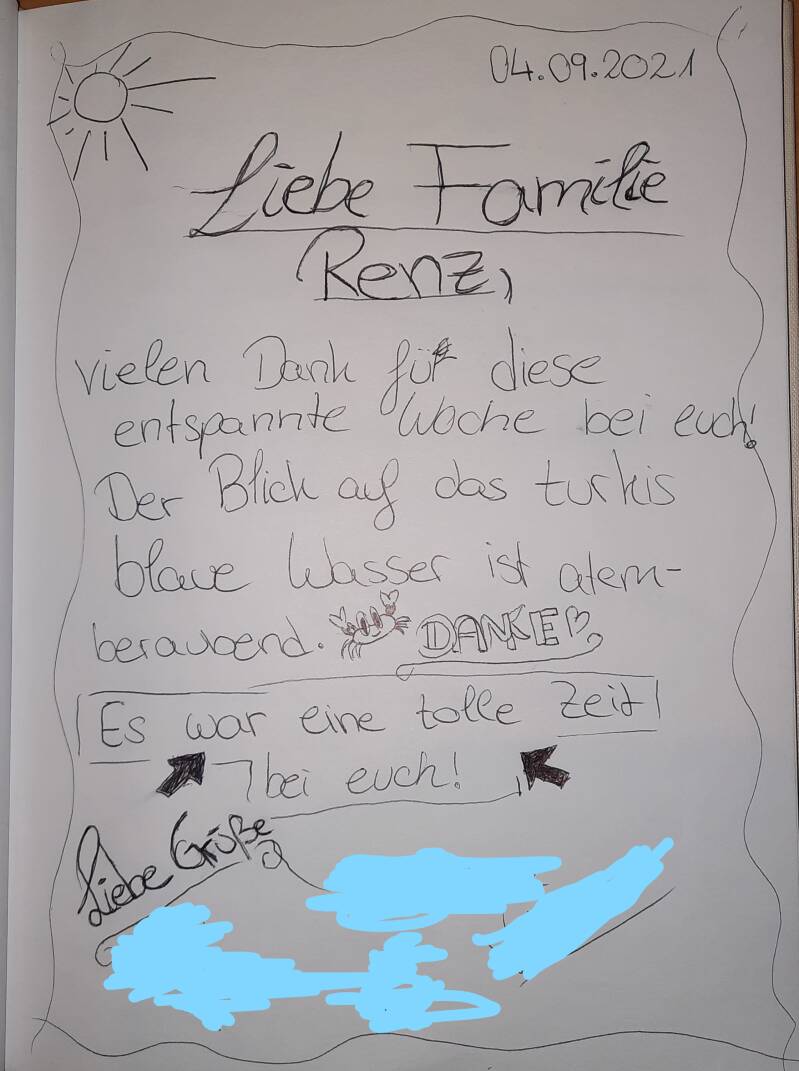 04.09.2021
Liebe Familie
Renz,
vielen Dank für diese
entspannte Woche bei euch!
Der Blick auf das turkis
blaue Wasser ist atem-
beraubend. DANKE
Es war eine tolle Zeit
bei euch!
Liebe Grüße